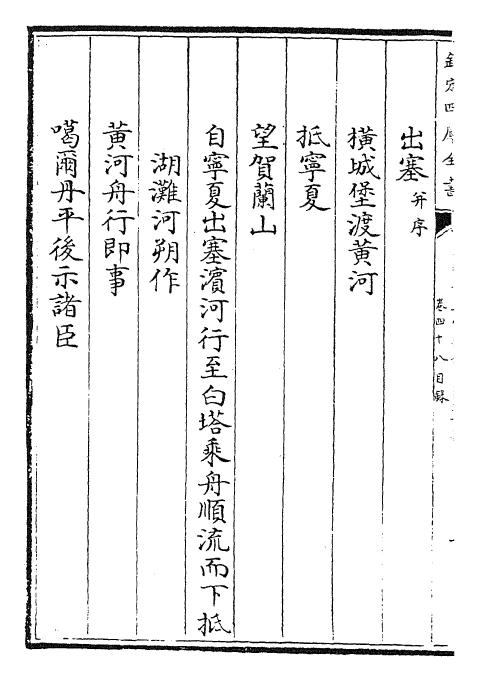 欽定四庫全書
卷四十八目錄
出塞并序
橫城堡渡黃河
抵寧夏
望賀蘭山
自寧夏出塞濱河行至白塔乘舟順流而下抵
湖灘河朔作
黃河舟行即事
噶爾丹平後示諸臣